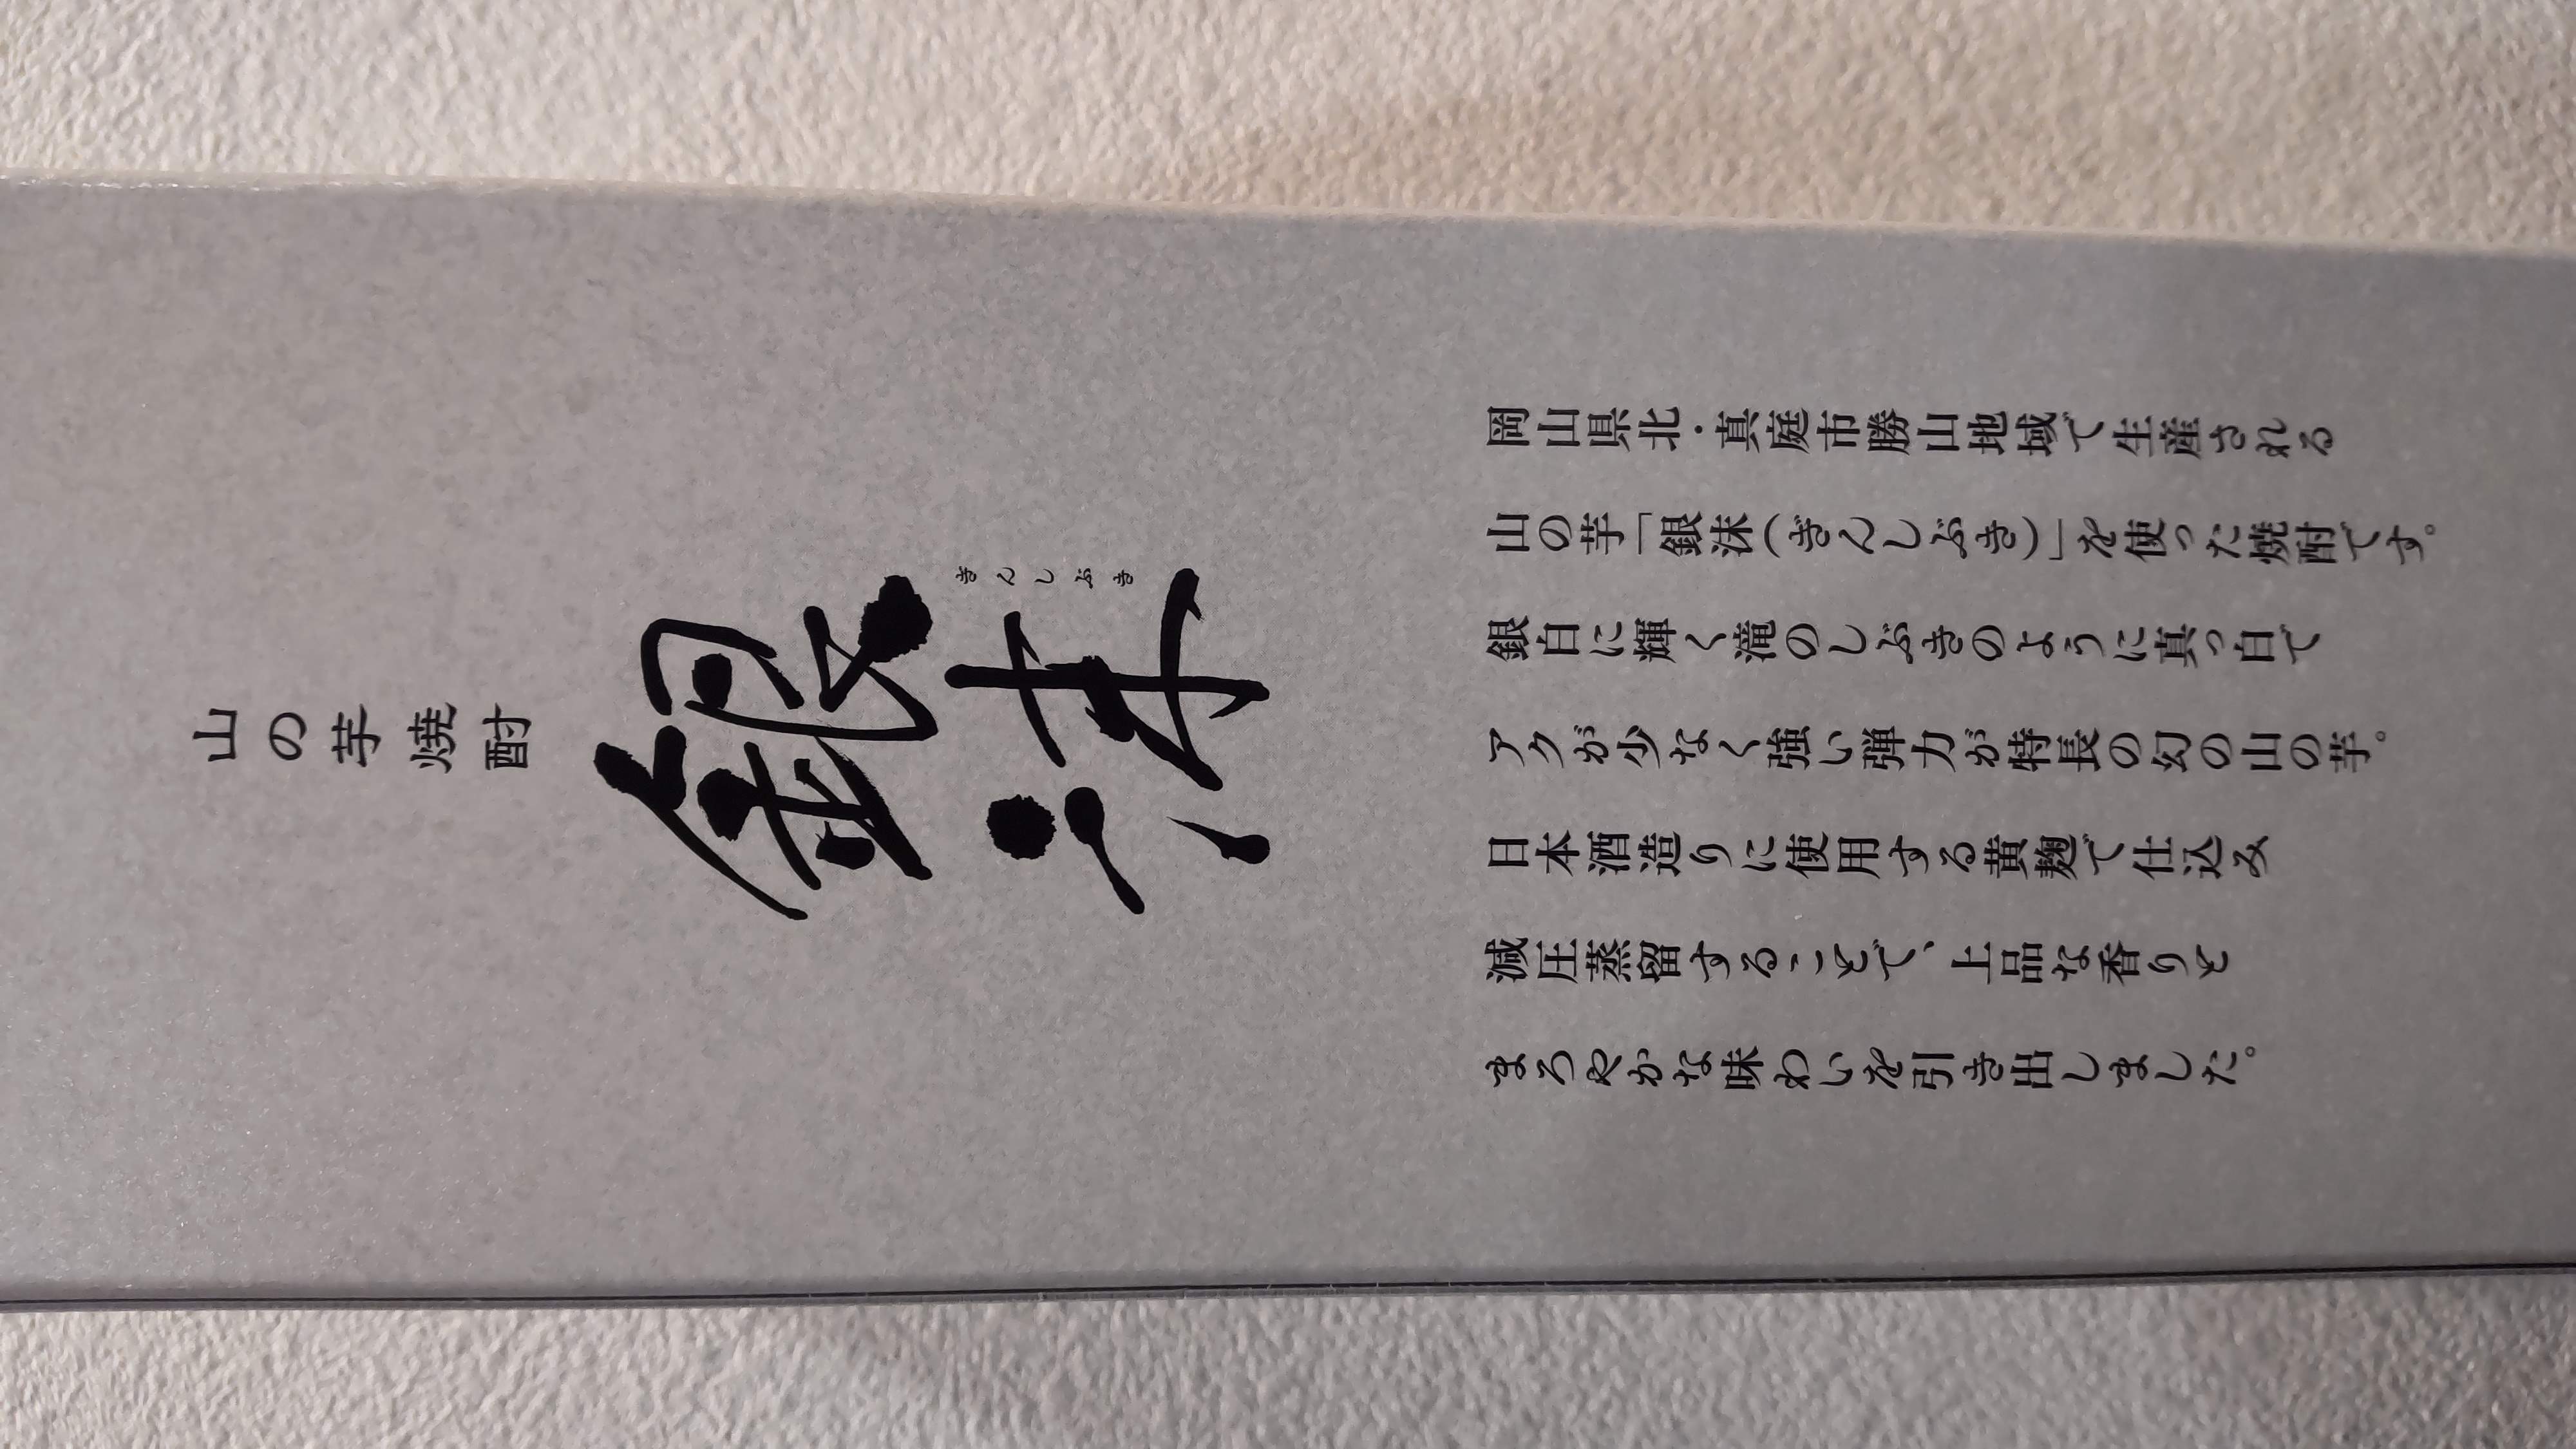 山の芋焼酎
銀沫
ぎんしぶき
岡山県北・真庭市勝山地域で生産される
山の芋「銀沫(ぎんしぶき)」を使った焼酎です。
銀白に輝く滝のしぶきのように真っ白で
アクが少なく強い弾力が特長の幻の山の芋。
日本酒造りに使用する黄麹で仕込み
減圧蒸留することで、上品な香りと
まろやかな味わいを引き出しました。